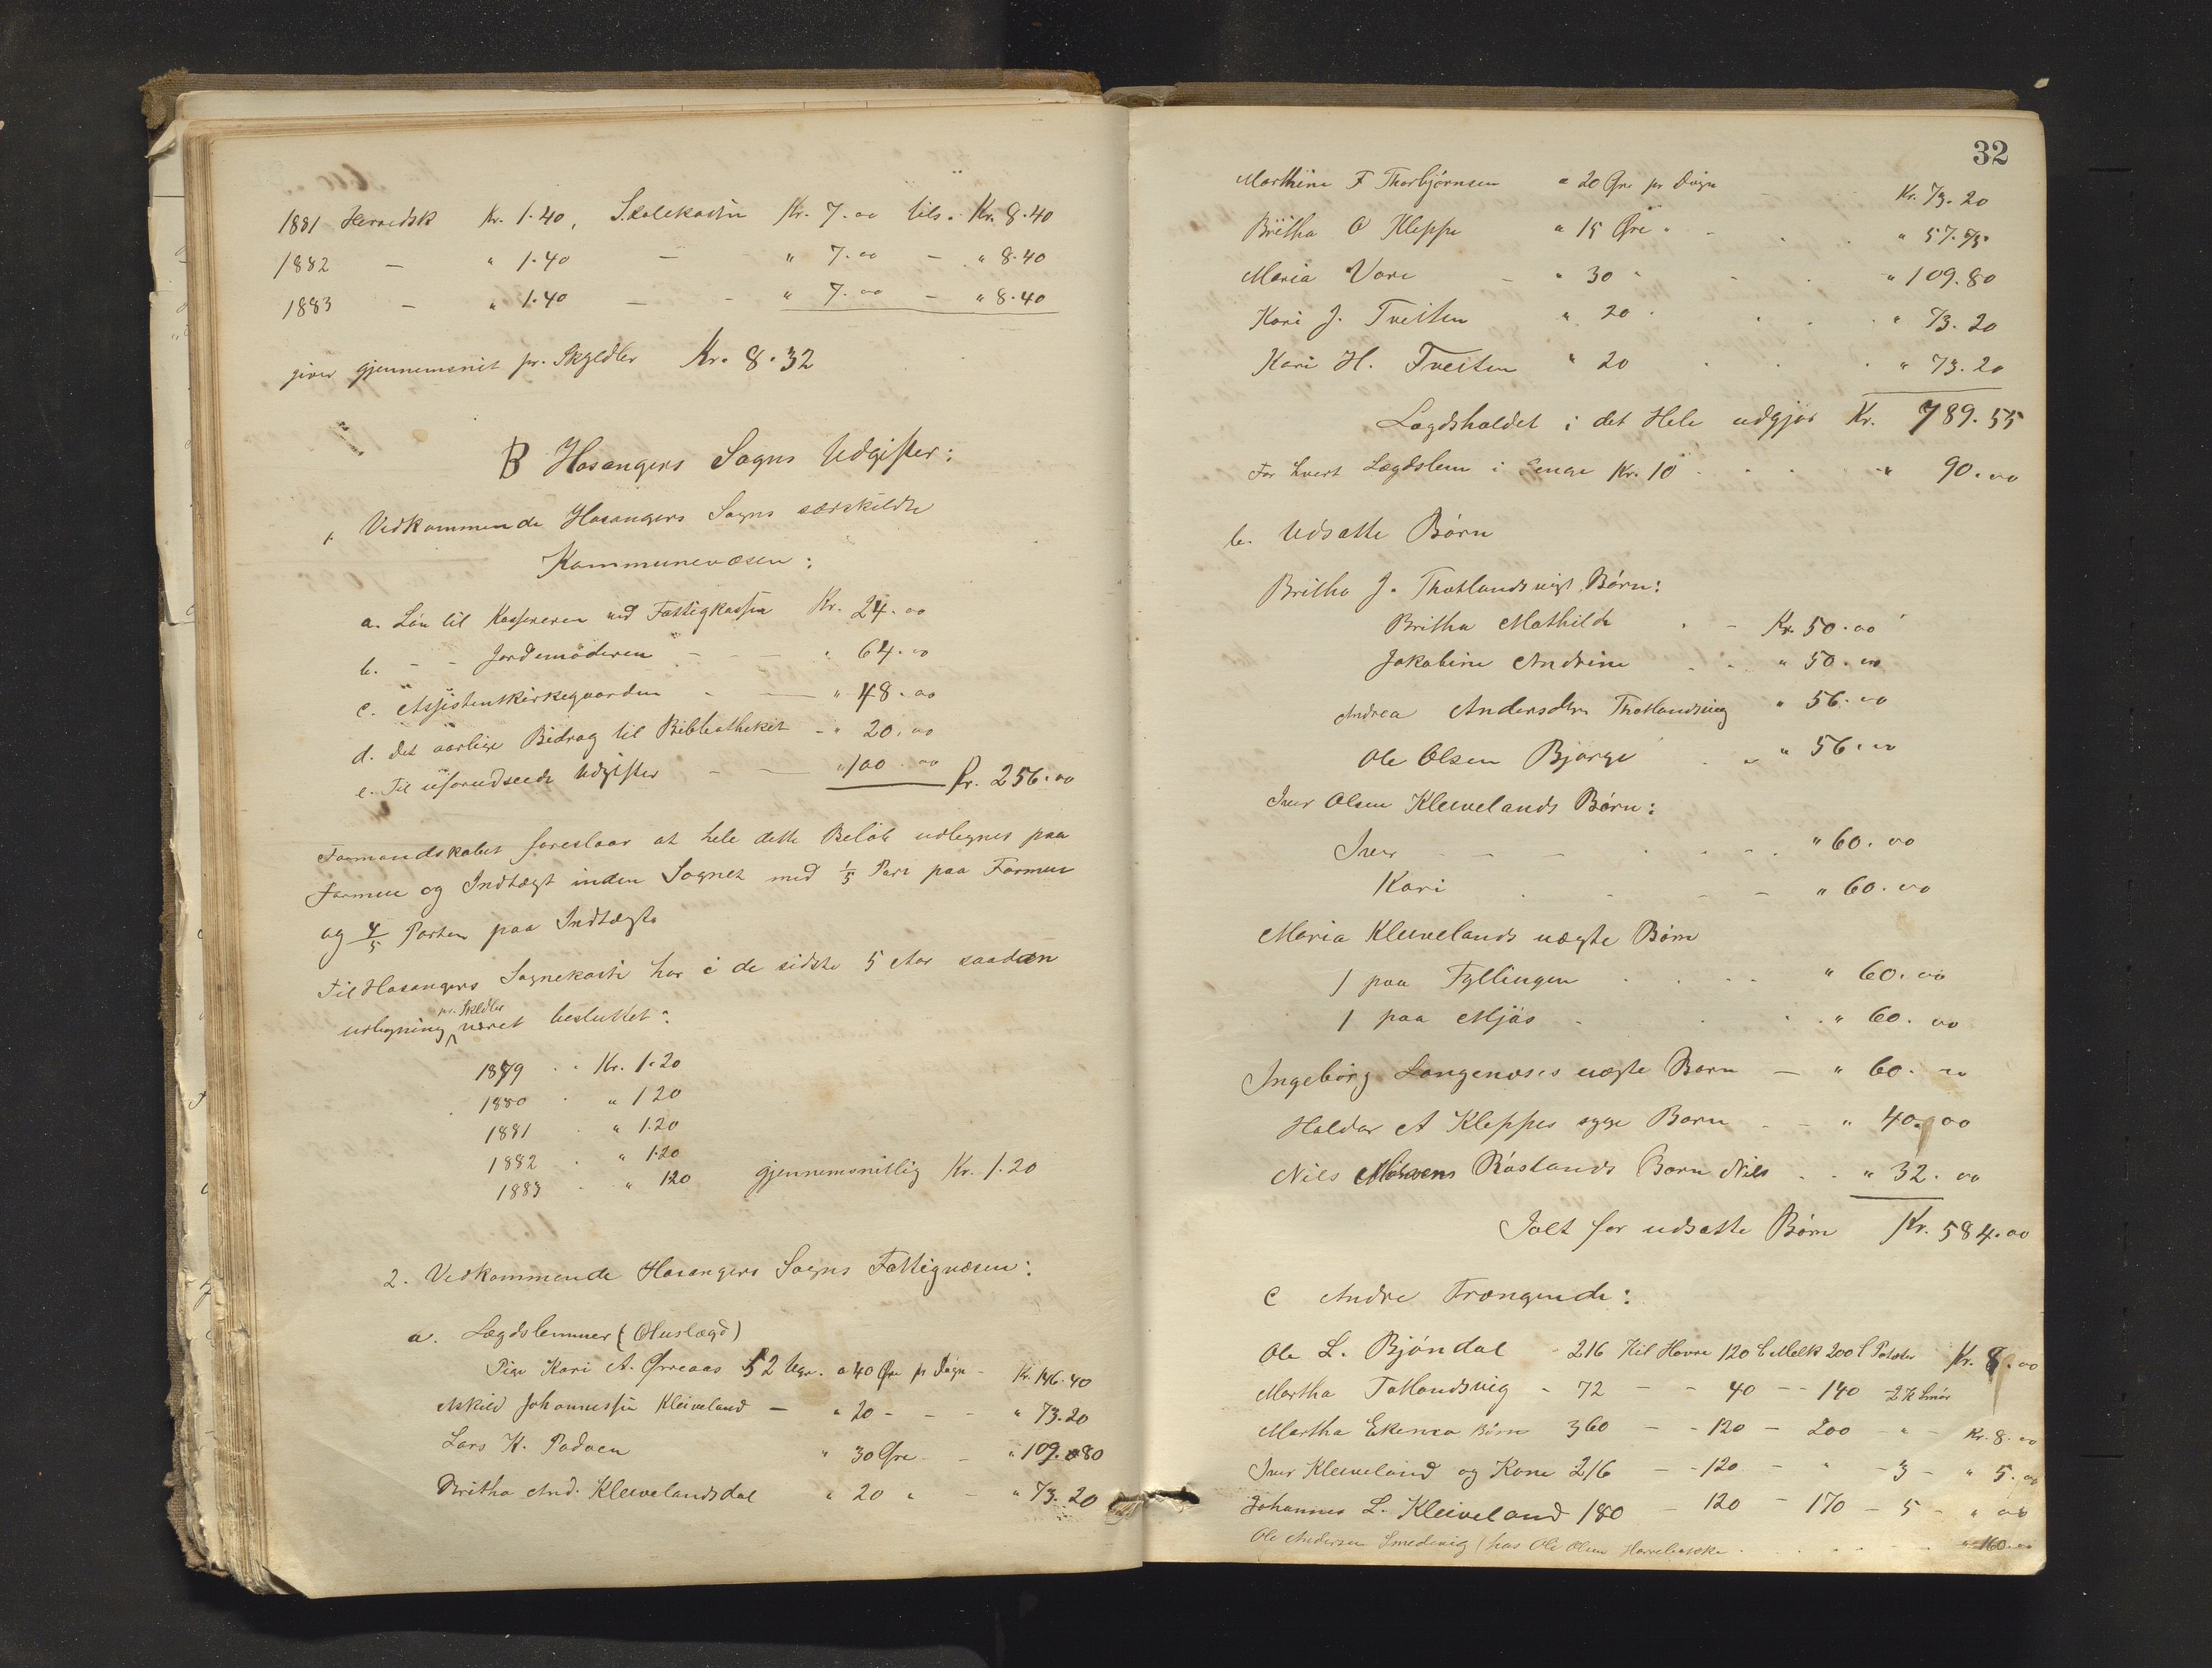 1881 Herredsk Kr. 1.40, Skolekassen Kr. 7.00 tils. Kr. 8.40
1882 — " 1.40 — " 7.00 — " 8.40
1883 — " 1.40 — - " 7.00 — " 8.40
giver gjennemsnit pr. Skyldlr Kr. 8.32
B Hosangers Sogns Udgifter:
1. Vedkommende Hosangers Sogns særskildte
Kommunevæsen:
a. Løn til Kassereren ved Fattigkassen Kr. 24.00
b. - - Jordemoderen - - - " 64.00
c. Assistentskirkegaarden - — " 48.00
d. Det aarlige Bidrag til Bibliotheket - " 20.00
e. Til uforudseede Udgifter - — " 100.00 Kr. 256.00
Formandskabet foreslaar at hele dette Beløb udlignes paa
Formue og Indtægt inden Sognet med 1/5 Part paa Formue
og 4/5 Parten paa Indtægt.
Til Hosangers Sognekasse har i de sidste 5 Aar saadan
pr. Skldlr
udligning været besluttet:
1879 . . Kr. 1.20
1880 . " 1 20
1881 . " 1.20
1882 . " 1.20
1883 . " 1 20 gjennemsnitlig Kr. 1.20
2. Vedkommende Hosangers Sogns Fattigvæsen:
a. Lægdslemmer (Huslægd)
Pige Kari A. Ørreaas 52 Uger. a 40 Øre pr Døgn - Kr. 146.40
Askild Johannessen Kleiveland — " 20 - - - " 73.20
Lars K. " 30 Øre - - " 109.80
Britha And. Kleivelandsdal " 20 " - " 73.20
32
Marthine F Thorbjørnsen a 20 Øre pr Døgn Kr. 73.20
Britha O Kleppe " 15 Øre " - . . " 57.
Maria Vare - " 30 " - . " 109.80
Kari J. Tveiten " 20 . . . . " 73.20
Kari H. Tveiten " 20 . . . " 73.20
Lægdsholdet i det Hele udgjør Kr. 789.55
For hvert Lægdslem i Senge Kr. 10 . . . . " 90.00
b. Udsatte Børn
Britha J. Thotlandsvigs Børn:
Britha Mathilde . - Kr. 50.00
Jakobine Andrine . . " 50.00
Andrea Andersdtr. Thotlandsvig " 56.00
Ole Olsen Bjørge . - " 56.00
Iver Olsen Kleivelands Børn:
Iver — — — . . - . " 60.00
Kari . . - - " 60.00
Maria Kleivelands uægte Børn
1 paa Fyllingen . . . . " 60.00
1 paa Mjøs - . . . " 60.00
Ingeborg Langenæses uægte Barn — " 60.00
Haldor A Kleppes syge Barn - - " 40.00
Nils Røslands Barn Nils . . " 32.00
Ialt for udsatte Børn Kr. 584.00
c Andre Trængende:
Ole L. Bjøndal - 216 Kil Havre 120 l Melk 200 l Poteter Kr. 8.00
Martha Totlandsvig - 72 — - 40 — - 140 - 2 K Smør
Martha Børn 360 — - 120 — 200 - " - Kr. 8.00
Iver Kleiveland og Kone 216 — - 120 - " - 3 - " 5.00
Johannes L. Kleiveland 180 — 120 - 170 - 5 - " 00
Ole Andersen Smedsvig (hos Ole Olsen . . . . . . " 160.00